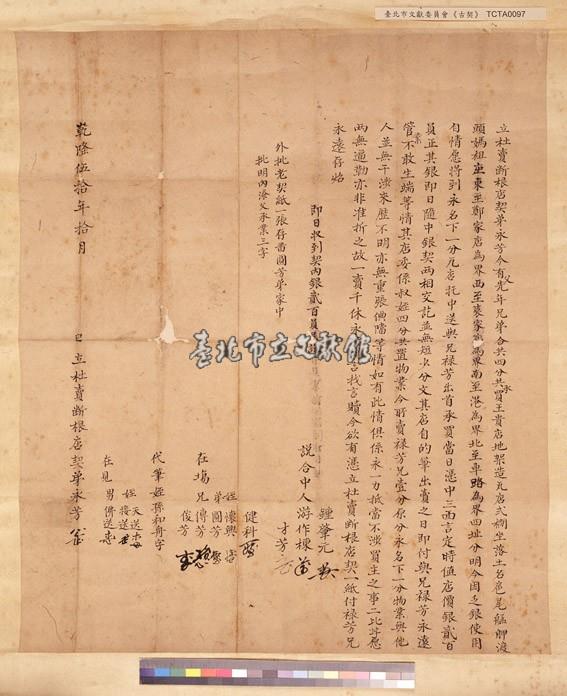 臺北市文獻委員會《古契》 TCTA0097
立杜賣斷根店契弟永芳今有父先年兄弟合共四分共買王貴店地架造瓦店弍棚坐落土名扈尾艋舺渡
頭媽祖座東至鄭家店為界西至家為界南至港為界北至車路為界四址分明今因乏銀使用
自情愿將到永名下一分瓦店托中送與兄祿芳出首承買當日憑中三面言定時值店價銀貳百
員正其銀即日隨中銀契兩相交訖並無短少分文其店自的筆出賣之日即付與兄祿芳永遠
管業不敢生端等情其店委係叔姪四分共置物業今所賣祿芳兄壹分原分永名下一分物業與他
人並無干涉來歷不明亦無重張典當等情如有此情俱係永一力抵當不涉買主之事二比甘愿
兩無逼勒亦非准折之故一賣千休永言找言贖今欲有憑立杜賣斷根店契一紙付祿芳兄
永遠存炤
即日收到契內銀貳百員
外批老契紙一張存畨圓芳弟家中
批明內添父承業三字
說合中人 鍾肇元
游作棟
才芳
健科
在塲 姪懷興
兄傳芳
弟圓芳
俊芳
代筆姪孫和舟字
在見 姪天送
姪接送
男佛送
乾隆伍拾年拾月 日立杜賣斷根店契弟永芳
臺北市立文獻館